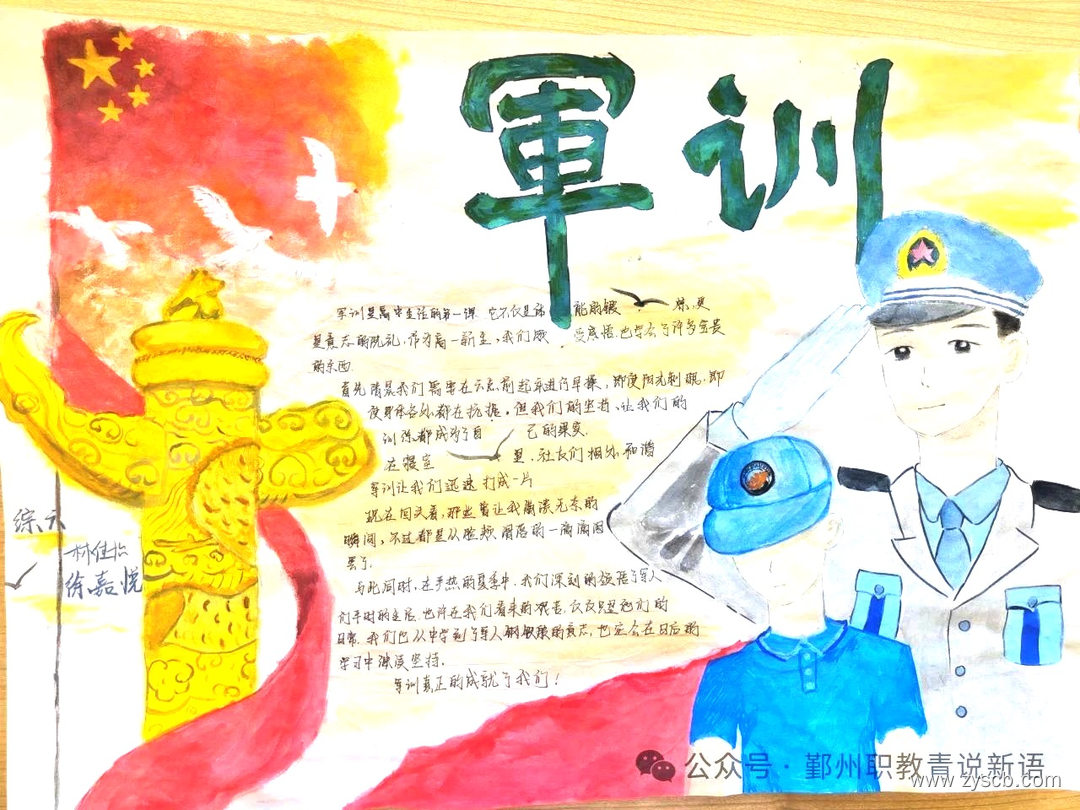 軍训
军训是高中生活的第一课 它不仅是体能的锻炼.更
是意志的洗礼,作为高一新生,我们 受感悟.也学会了许多宝贵
的东西.
首先清晨我们需要在六点前起来进行早操,即使阳光刺眼,即
使身体各处都在抗拒,但我们的坚持,让我们的
训练都成为了自己的果实.
在寝室里,社友们相处和谐
军训让我们迅速打成一片
现在回头看,那些曾让我崩溃无奈的
瞬间,不过都是从脸颊滑落的一滴滴
罢了.
与此同时,在炎热的夏季中,我们深刻的领悟了军人
们平时的生活,也许在我们看来的艰苦,仅仅只是他们的
日常.我们也从中学到了军人钢铁般的意志,也定会在日后的
学习中 坚持.
军训真正的成就了我们!
综六
林佳怡
徐嘉悦
公众号·鄞州职教青说新语
www.zyscb.com